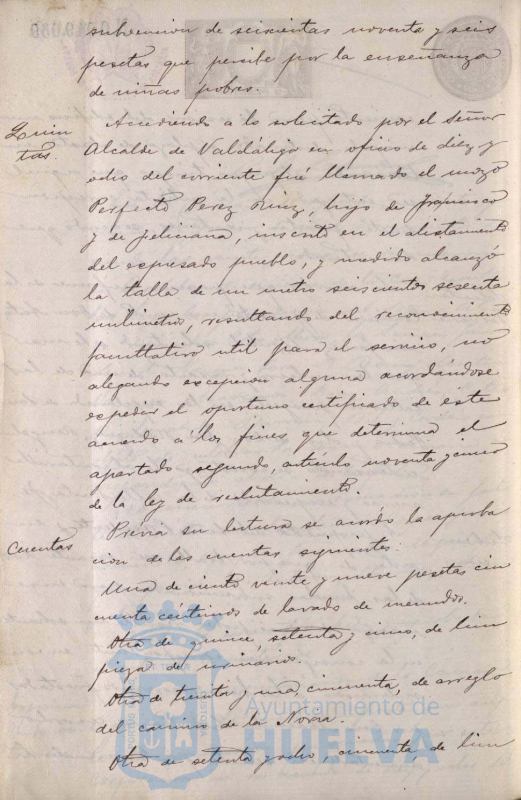 subvencion de seiscientas noventa y seis
pesetas que percibe por la enseñanza
de niñas pobres.
Quin
tas.
Accediendo a lo solicitado por el Señor
Alcalde de Valdáliga en oficio de diez y
ocho del corriente fué llamado el mozo
Perfecto Perez Ruiz, hijo de Francisco
y de Feliciana, inscrito en el alistamiento
del espresado pueblo, y medido alcanzó
la talla de un metro seiscientos sesenta
milimetros, resultando del reconocimiento
facultativo util para el servicio, no
alegando excepcion alguna acordándose
expedir el oportuno certificado de este
acuerdo á los fines que determina el
apartado segundo, artículo noventa y cinco
de la ley de reclutamiento.
Cuentas
Previa su lectura se acordó la aproba
cion de las cuentas siguientes:
Una de ciento veinte y nueve pesetas cin
cuenta céntimos de lavado de menudos.
Otra de quince, setenta y cinco, de lim
pieza de urinarios.
Otra de treinta y una, cincuenta, de arreglo
del camino de la Noria.
Otra de setenta y ocho, cincuenta, de lim
Ayuntamiento de
HUELVA